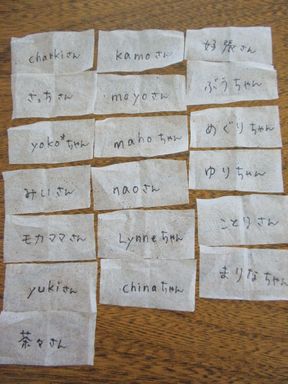 charkiさん
kamoさん
好張さん
さっちさん
moyoさん
ぶうちゃん
yoko*ちゃん
mahoちゃん
めぐりちゃん
みいさん
naoさん
ゆりちゃん
モカママさん
Lynneちゃん
ことりさん
yukiさん
chinaちゃん
まりなちゃん
茶々さん